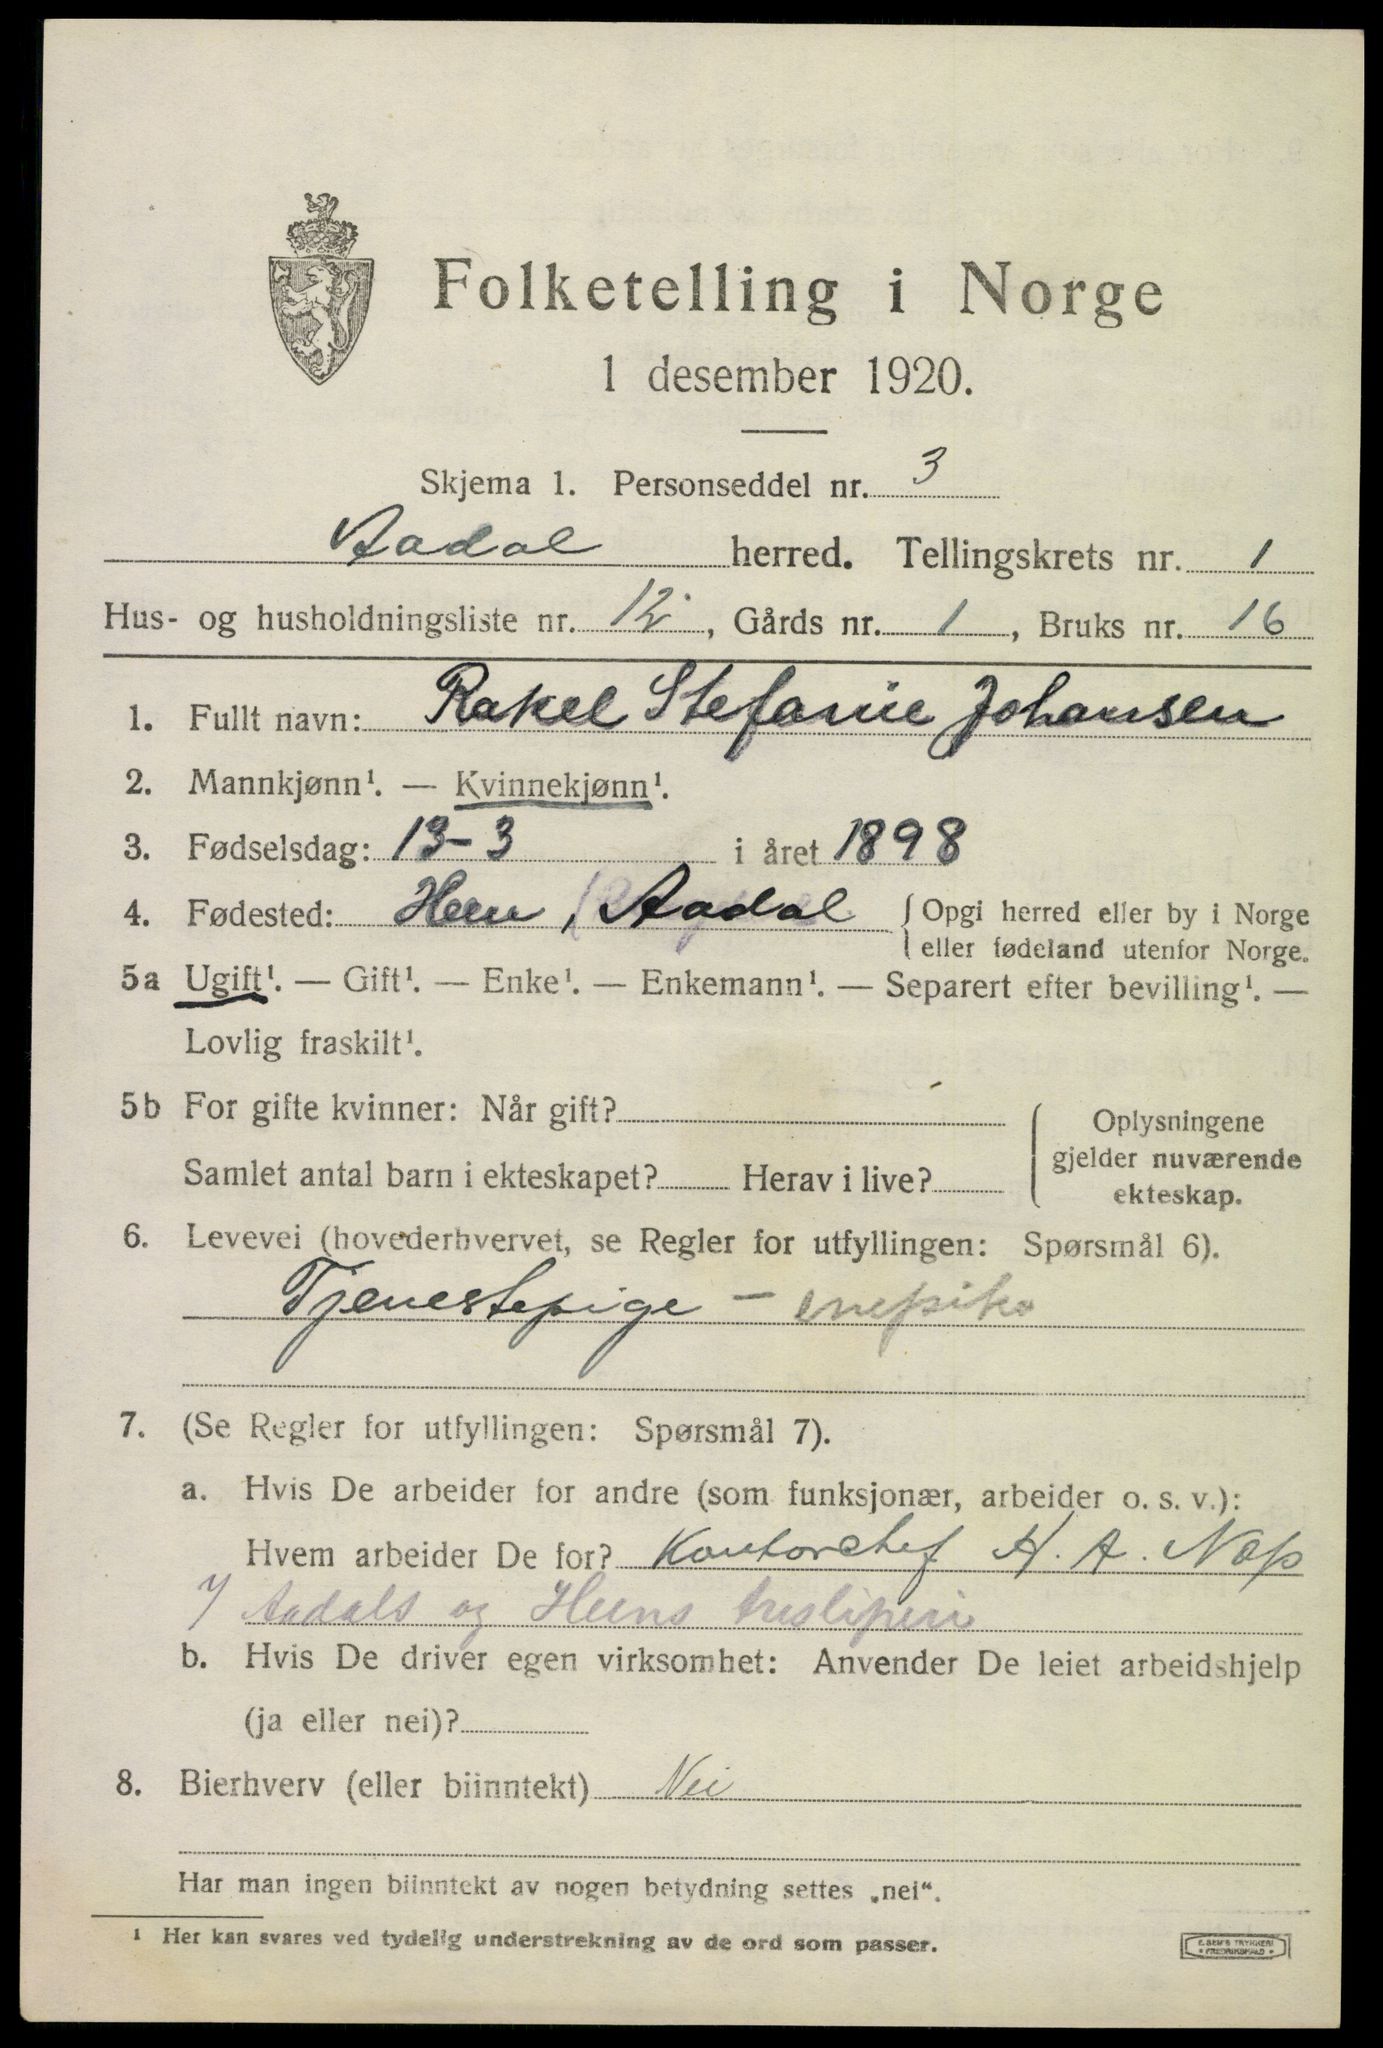 Folketelling i Norge
1 desember 1920.
Skjema 1. Personseddel nr. 3
Aadal herred. Tellingskrets nr. 1
Hus- og husholdningsliste nr. 12, Gårds nr. 1, Bruks nr. 16
1. Fullt navn: Rakel Stefanie Johansen
2. Mannkjønn¹. — Kvinnekjønn¹.
3. Fødselsdag: 13-3 i året 1898
4. Fødested: Heen, Aadal { Opgi herred eller by i Norge
eller fødeland utenfor Norge.
5a Ugift¹. — Gift¹. — Enke¹. — Enkemann¹. — Separert efter bevilling¹. —
Lovlig fraskilt¹.
5b For gifte kvinner: Når gift?
Samlet antal barn i ekteskapet? Herav i live?
Oplysningene
gjelder nuværende
ekteskap.
6. Levevei (hovederhvervet, se Regler for utfyllingen: Spørsmål 6).
Tjenestepige - enepike
7. (Se Regler for utfyllingen: Spørsmål 7).
a. Hvis De arbeider for andre (som funksjonær, arbeider o. s. v.):
Hvem arbeider De for? Kontorchef H. A. Næss
Aadals og Heens tresliperi
b. Hvis De driver egen virksomhet: Anvender De leiet arbeidshjelp
(ja eller nei)?
8. Bierhverv (eller biinntekt) Nei
Har man ingen biinntekt av nogen betydning settes „nei“.
¹ Her kan svares ved tydelig understrekning av de ord som passer.
E. SEM'S TRYKKERI
FREDRIKSHALD